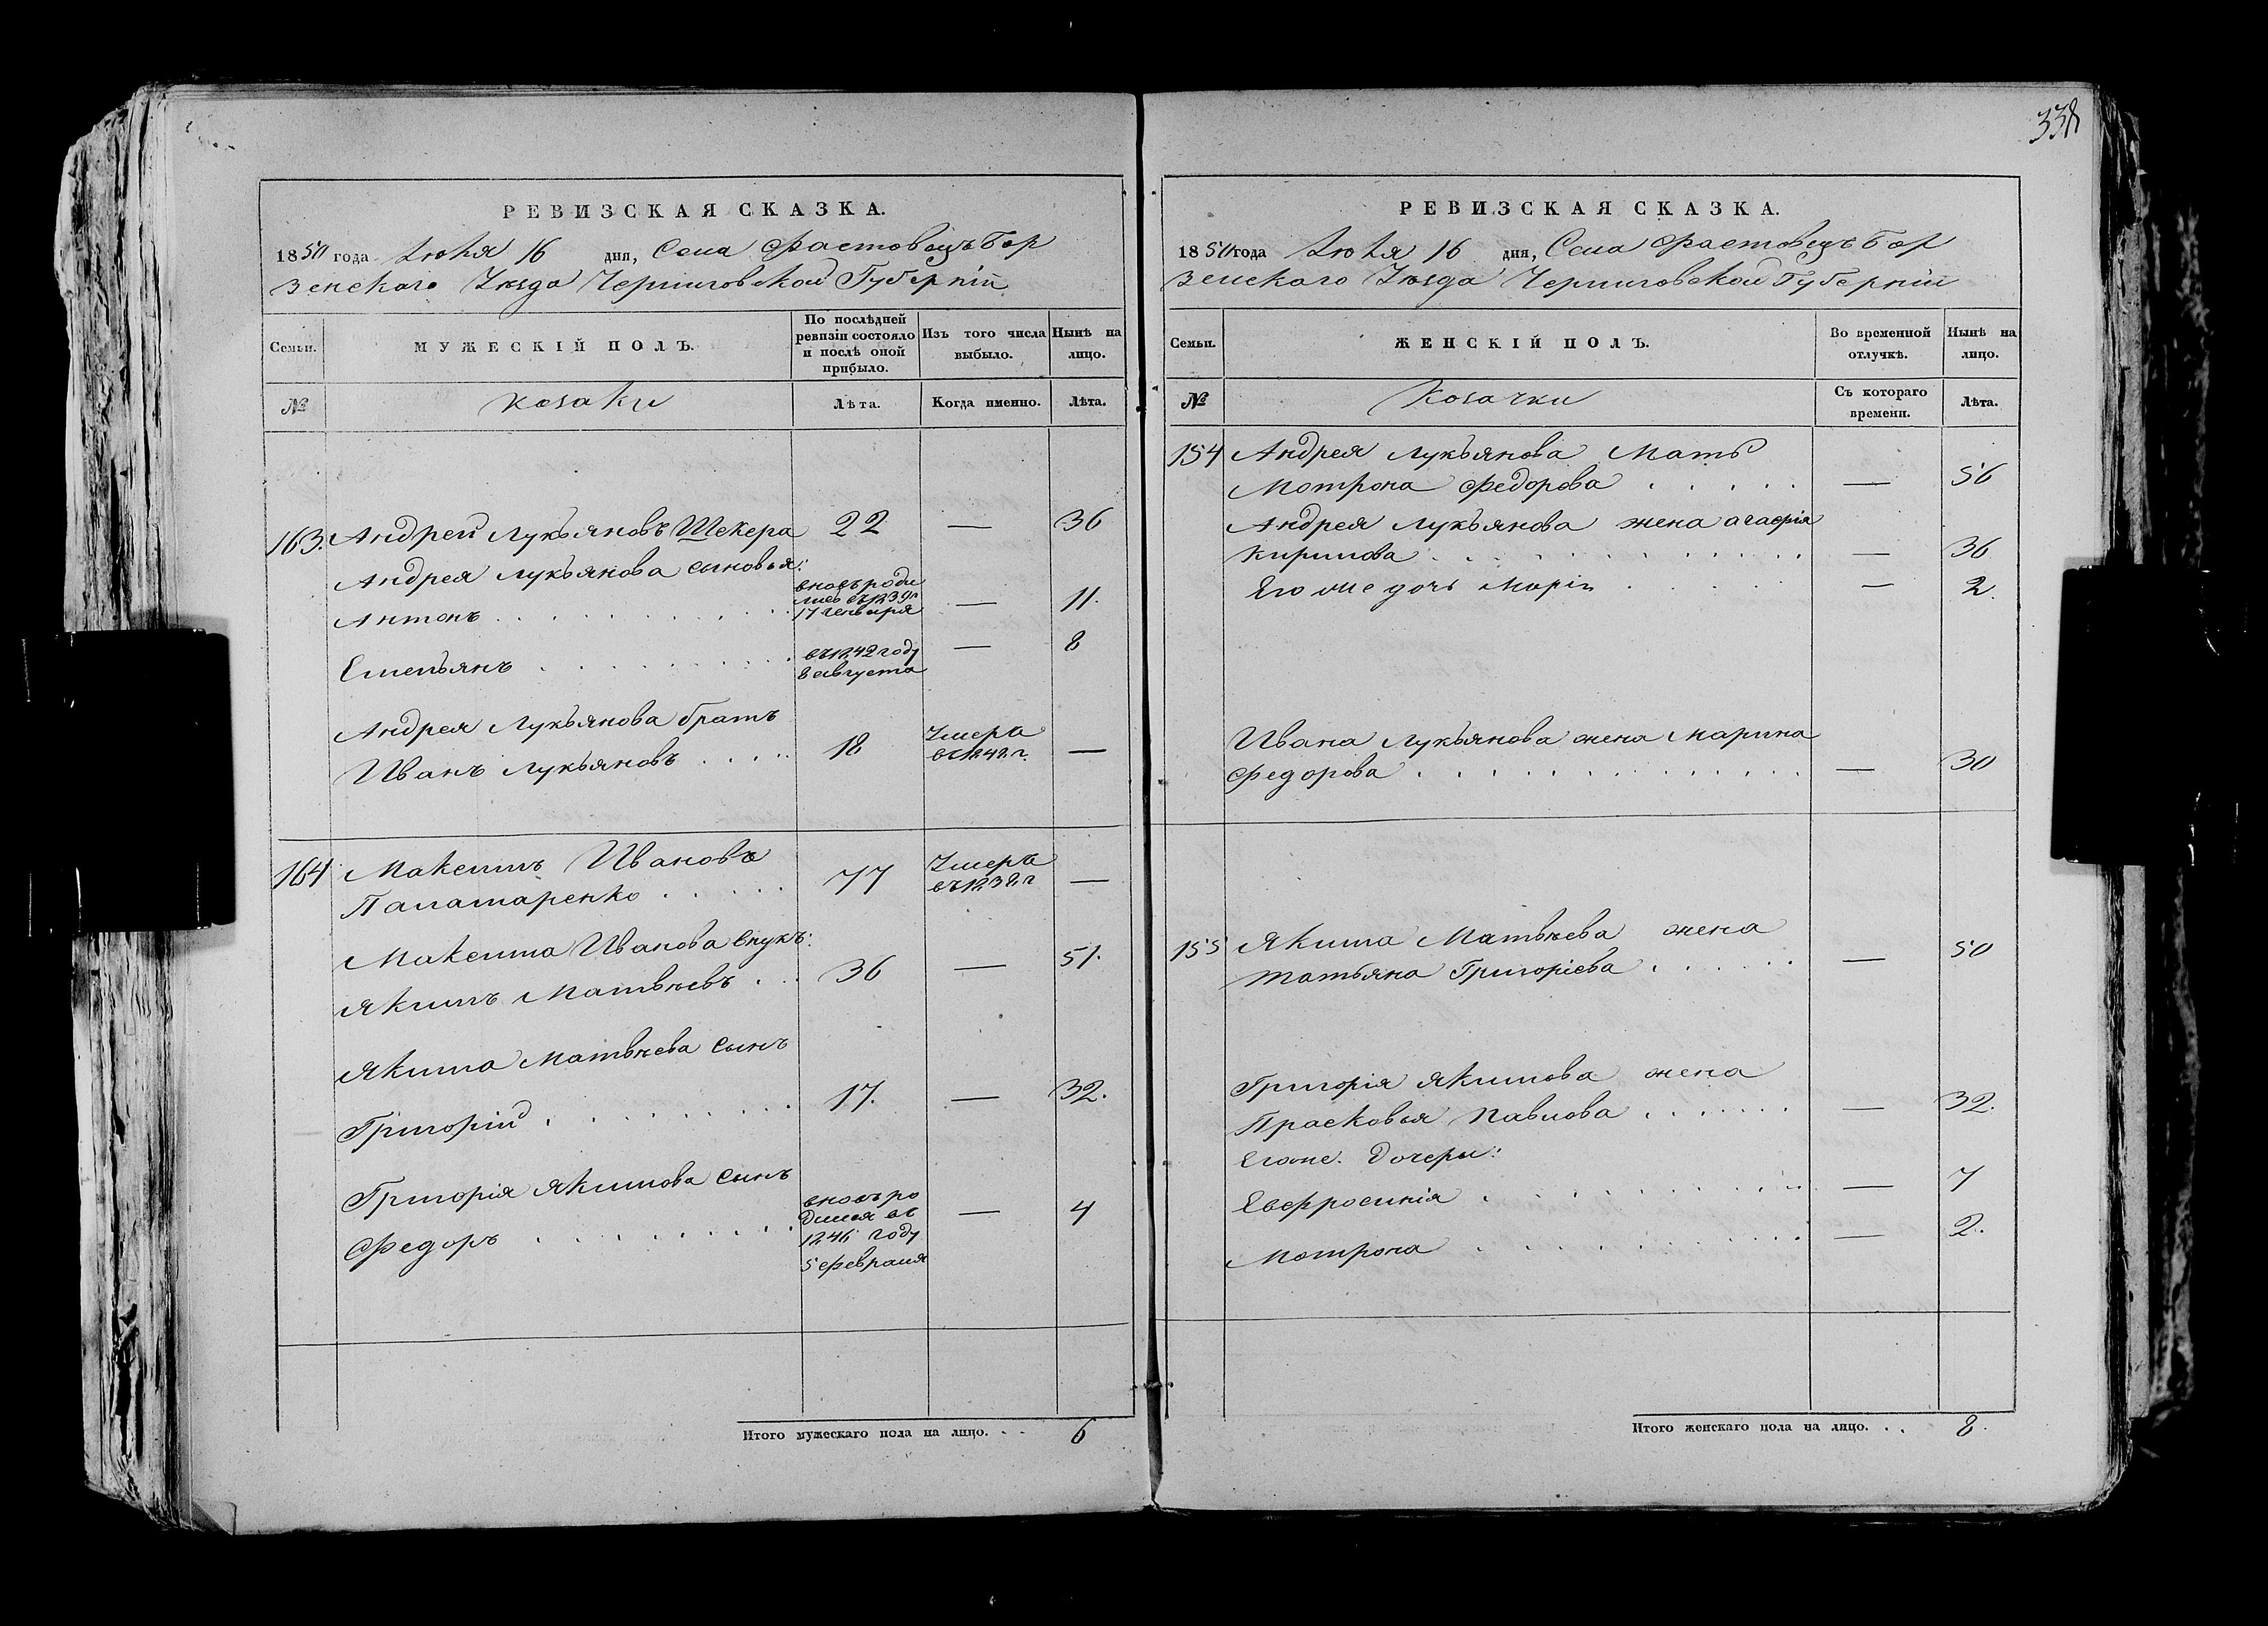 338
РЕВИЗСКАЯ СКАЗКА.
1850 года Іюня 16 дня, Села Фастовецъ Бор
зенскаго Уѣзда Черниговской Губерніи
Семьи. МУЖЕСКІЙ ПОЛЪ. По послѣдней ревизіи состояло и послѣ оной прибыло. Изъ того числа выбыло. Нынѣ на лицо.
№ Козаки Лѣта. Когда именно. Лѣта.
163. Андрей Лукьяновъ Шекера 22 — 36
Андрея Лукьянова сыновья:
Антонъ . . . вновь роди
лись въ 1839 г
17 генваря — 11.
Емельянъ . . . въ 1842 году
8 августа — 8
Андрея Лукьянова братъ
Иванъ Лукьяновъ . . . 18 Умеръ
въ 1842 г. —
164 Максимъ Ивановъ
Паламаренко . . . 77 Умеръ
въ 1838 г —
Максима Иванова внукъ:
Якимъ Матвѣевъ . . 36 — 51.
Якима Матвѣева сынъ
Григорій . . . 17. — 32.
Григорія Якимова сынъ
Федоръ . . . вновь ро
дился въ
1846 году
5 февраля — 4
Итого мужескаго пола на лицо. . . 6
РЕВИЗСКАЯ СКАЗКА.
1850 года Іюня 16 дня, Села Фастовецъ Бор
зенскаго Уѣзда Черниговской Губерніи
Семьи. ЖЕНСКІЙ ПОЛЪ. Во временной отлучкѣ. Нынѣ на лицо.
№ Козачки Съ котораго времени. Лѣта.
154 Андрея Лукьянова Мать
Мотрона Федорова . . . — 56
Андрея Лукьянова жена агафія
Кирилова . . . — 36
Его же дочь Марія . . . — 2.
Ивана Лукьянова жена Марина
Федорова . . . — 30
155 Якима Матвѣева жена
Татьяна Григоріева . . . — 50
Григорія Якимова жена
Прасковья Павлова . . . — 32.
Его же. Дочери:
Евфросинія . . . — 7
Мотрона . . . — 2.
Итого женскаго пола на лицо. . . 8.